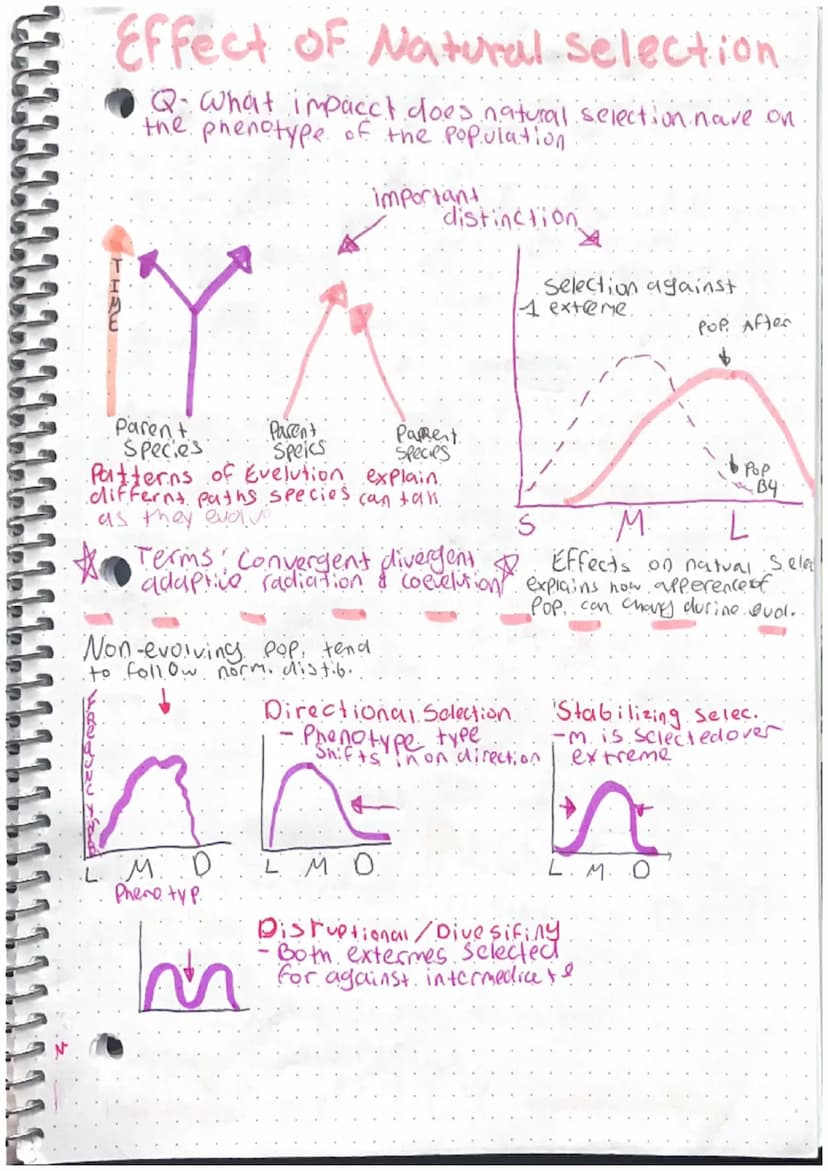 Effect of Natural Selection
Q- What impacct does natural selection have on
the phenotype of the population
important
distinction
TIME
Selection against
1 extreme
Pop. After
Parent
Species
Parent
Speics
Parrent
Species
Pop
B4
S M L
Patterns of Evelution explain
differnt paths species can tak
as they evolv
Terms: Convergent divergent
adaptive radiation & coevelution
Effects on natual Selec
explains how apperence of
Pop. can chang durine evol.
Non-evolving pop. tend
to follow norm. distib.
Directional Selection
- Phenotype type
shifts in on direction
Stabilizing Selec.
-m is selected over
extreme
L M D
L M D
L M D
Pheno typ.
Disruptional/Divesifiny
- Both extermes selected
for against intermedicate